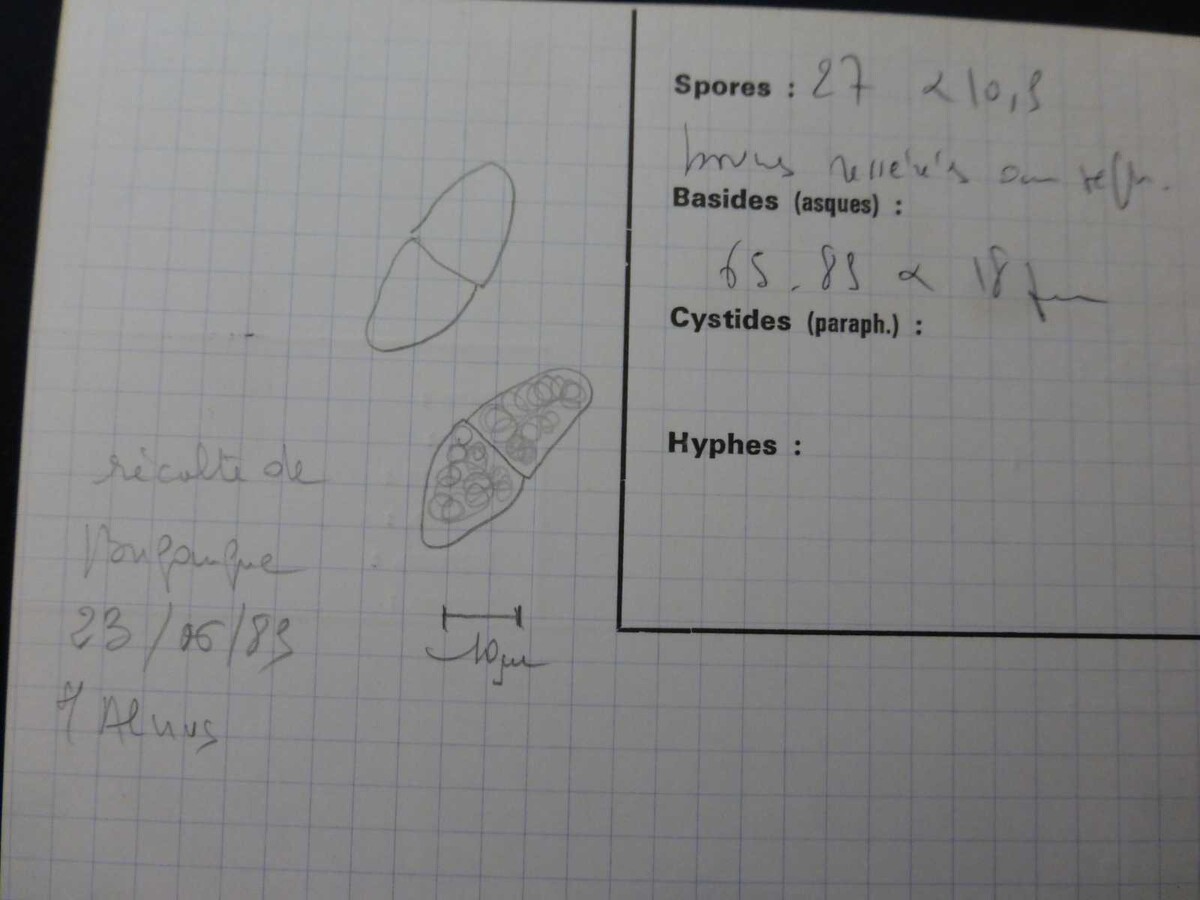 Spores : 27 × 10,5
bruns resserrés au
Basides (asques) :
65.85 × 18 µm
Cystides (paraph.) :
Hyphes :
récolte de
23/06/83
Alnus
10 µm